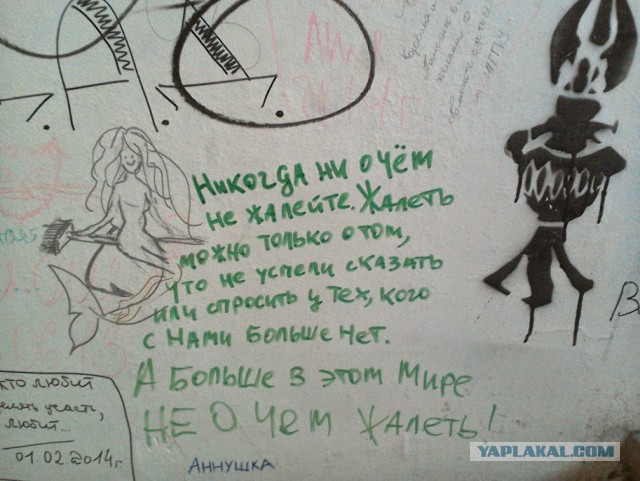 Никогда ни о чём
не жалейте. Жалеть
можно только о том,
что не успели сказать
или спросить у тех, кого
с нами больше нет.
А больше в этом мире
НЕ О чем жалеть!
Аннушка
кто любит
любит...
01.02.2014г.
YAPLAKAL.COM